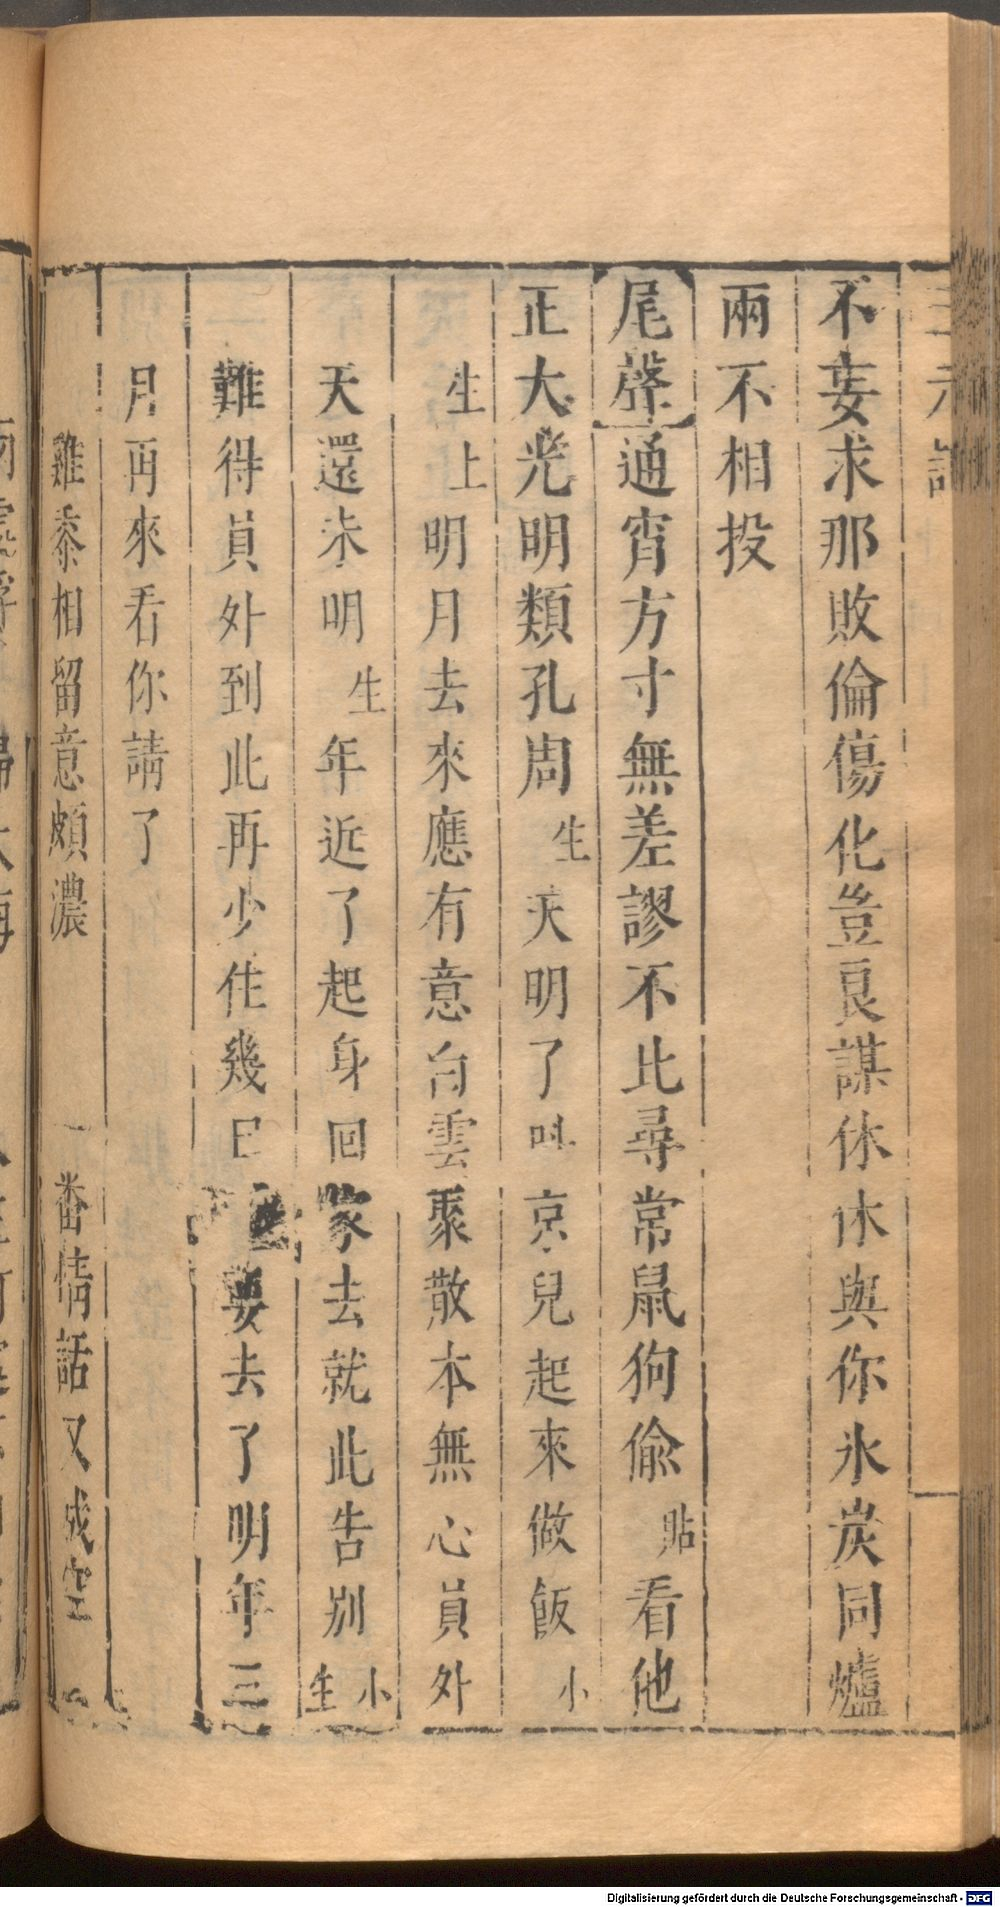 三元記
不妄求那敗倫傷化豈良謀休休與你氷炭同爐
兩不相投
尾聲通宵方寸無差謬不比尋常鼠狗偷貼看他
正大光明類孔周生天明了叫京兒起來做飯小
生上明月去來應有意白雲聚散本無心員外
天還未明生年近了起身回家去就此告別小生
難得員外到此再少住幾日生要去了明年三
月再來看你請了
雞黍相留意頗濃 一番情話又成空
Digitalisierung gefördert durch die Deutsche Forschungsgemeinschaft - DFG